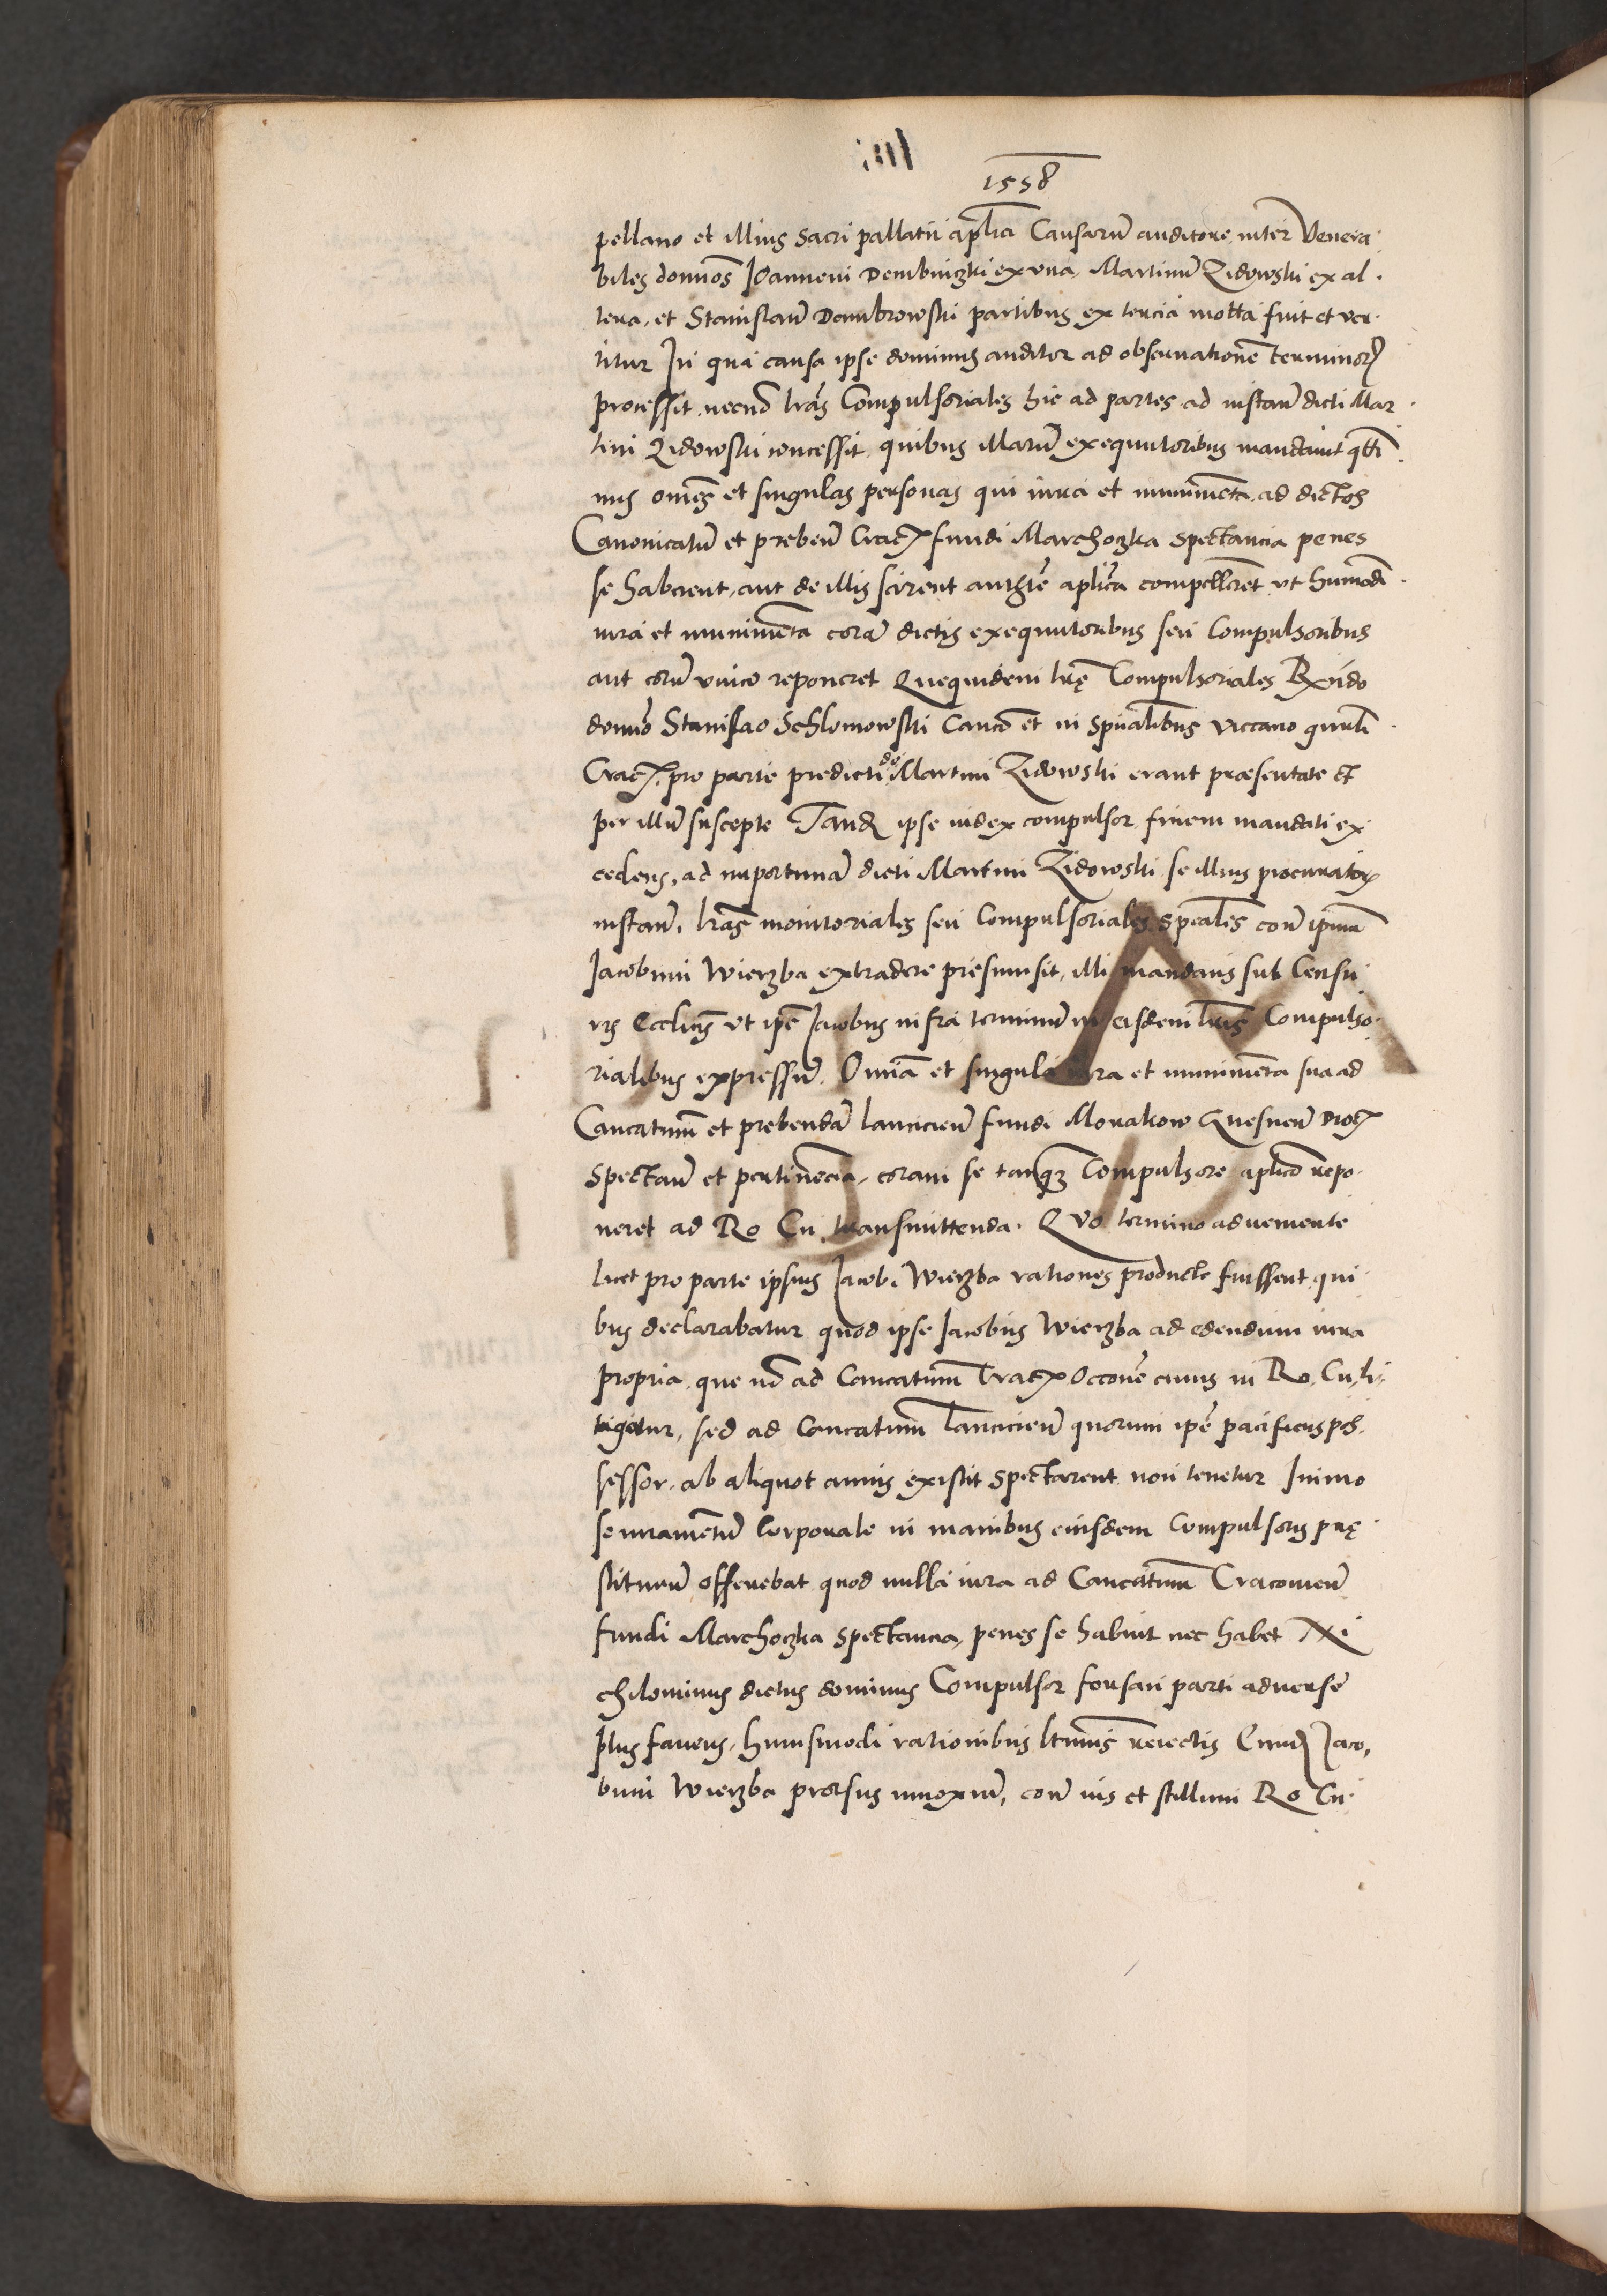 1558
pellano et illius sacri pallatii aplici Causarũ auditore inter Venera
biles domños Joannem Dembinczki ex vna, Martinũ Zidowski ex al
tera, et Stanislaũ Dambrowski partibus ex tercia motta fuit et ver
titur In qua causa ipse dominus auditor ad obseruationẽ terminoꝝ
processit necnõ lrãs Compulsoriales hic ad partes ad instanẽ dicti Mar
tini Zidowski concessit quibus illarũ exequutoribus mandauit qtt
nus omẽs et singulas personas qui iura et munimenta ad dictos
Canonicatũ et prebeñ Cracꝫ fundi Marchoczka spectancia penes
se haberent, aut de illis scirent authtẽ aplica compellerẽt vt humõdi
iura et munimẽta corã dictis exequutoribus seu Compulsoribus
aut eorũ vnico reponerẽt Quequidem lrę Compulsoriales Rxñdo
domño Stanislao Schlomowski Canco et in spũalibus vicario gñali
Cracꝫ. pro parte predicti do Martini Zidowski erant præsentate et
per illũ suscepte Tandẽ ipse iudex compulsor finem mandati ex
cedens, ad inportunã dicti Martini Zidowski se illius procuratorꝫ
instanẽ, lrãs monitoriales seu Compulsoriales speãles contr̃ ipsum
Jacobum Wierzba extradere presumsit, illi mandans sub Censu
ris Ecclicis vt ipẽ Jacobus infra terminũ in eisdem lrĩs Compulso
rialibus expressũ. Omnia et singula iura et munimẽta sua ad
Cancatum et prebendã lanciciẽn fundi Morakow Gnesneñ Diocꝫ
spectañ et pertinẽcia, coram se tanqꝫ Compulsore aplico repo
neret ad Ro Cu transmittenda. Quo termino adueniente
licet pro parte ipsius Jacobi Wierzba rationes producte fuissent qui
bus declarabatur quod ipse Jacobus Wierzba ad edendum iura
propria que nõ ad Cancatum Cracꝫ Occonẽ cuius in Ro. Cu. li
tigatur, sed ad Cancatum Lancicieñ quorum ipẽ pacificus pos
sessor ab aliquot annis existit spectarent non tenetur Immo
se iuramẽtũ Corporale in manibus eiusdem Compulsoris prę
stiturũ offerebat quod nulla iura ad Cancatum Cracouieñ
fundi Marchoczka spectancia, penes se habuit nec habet Ni
chilominus dictus dominus Compulsor forsan parti aduerse
plus fauens, huiusmodi rationibus ltimis reiectis Eundẽ Jaco,
bum Wierzba prorsus innoxiũ, contr̃ ius et stillum Ro Cu